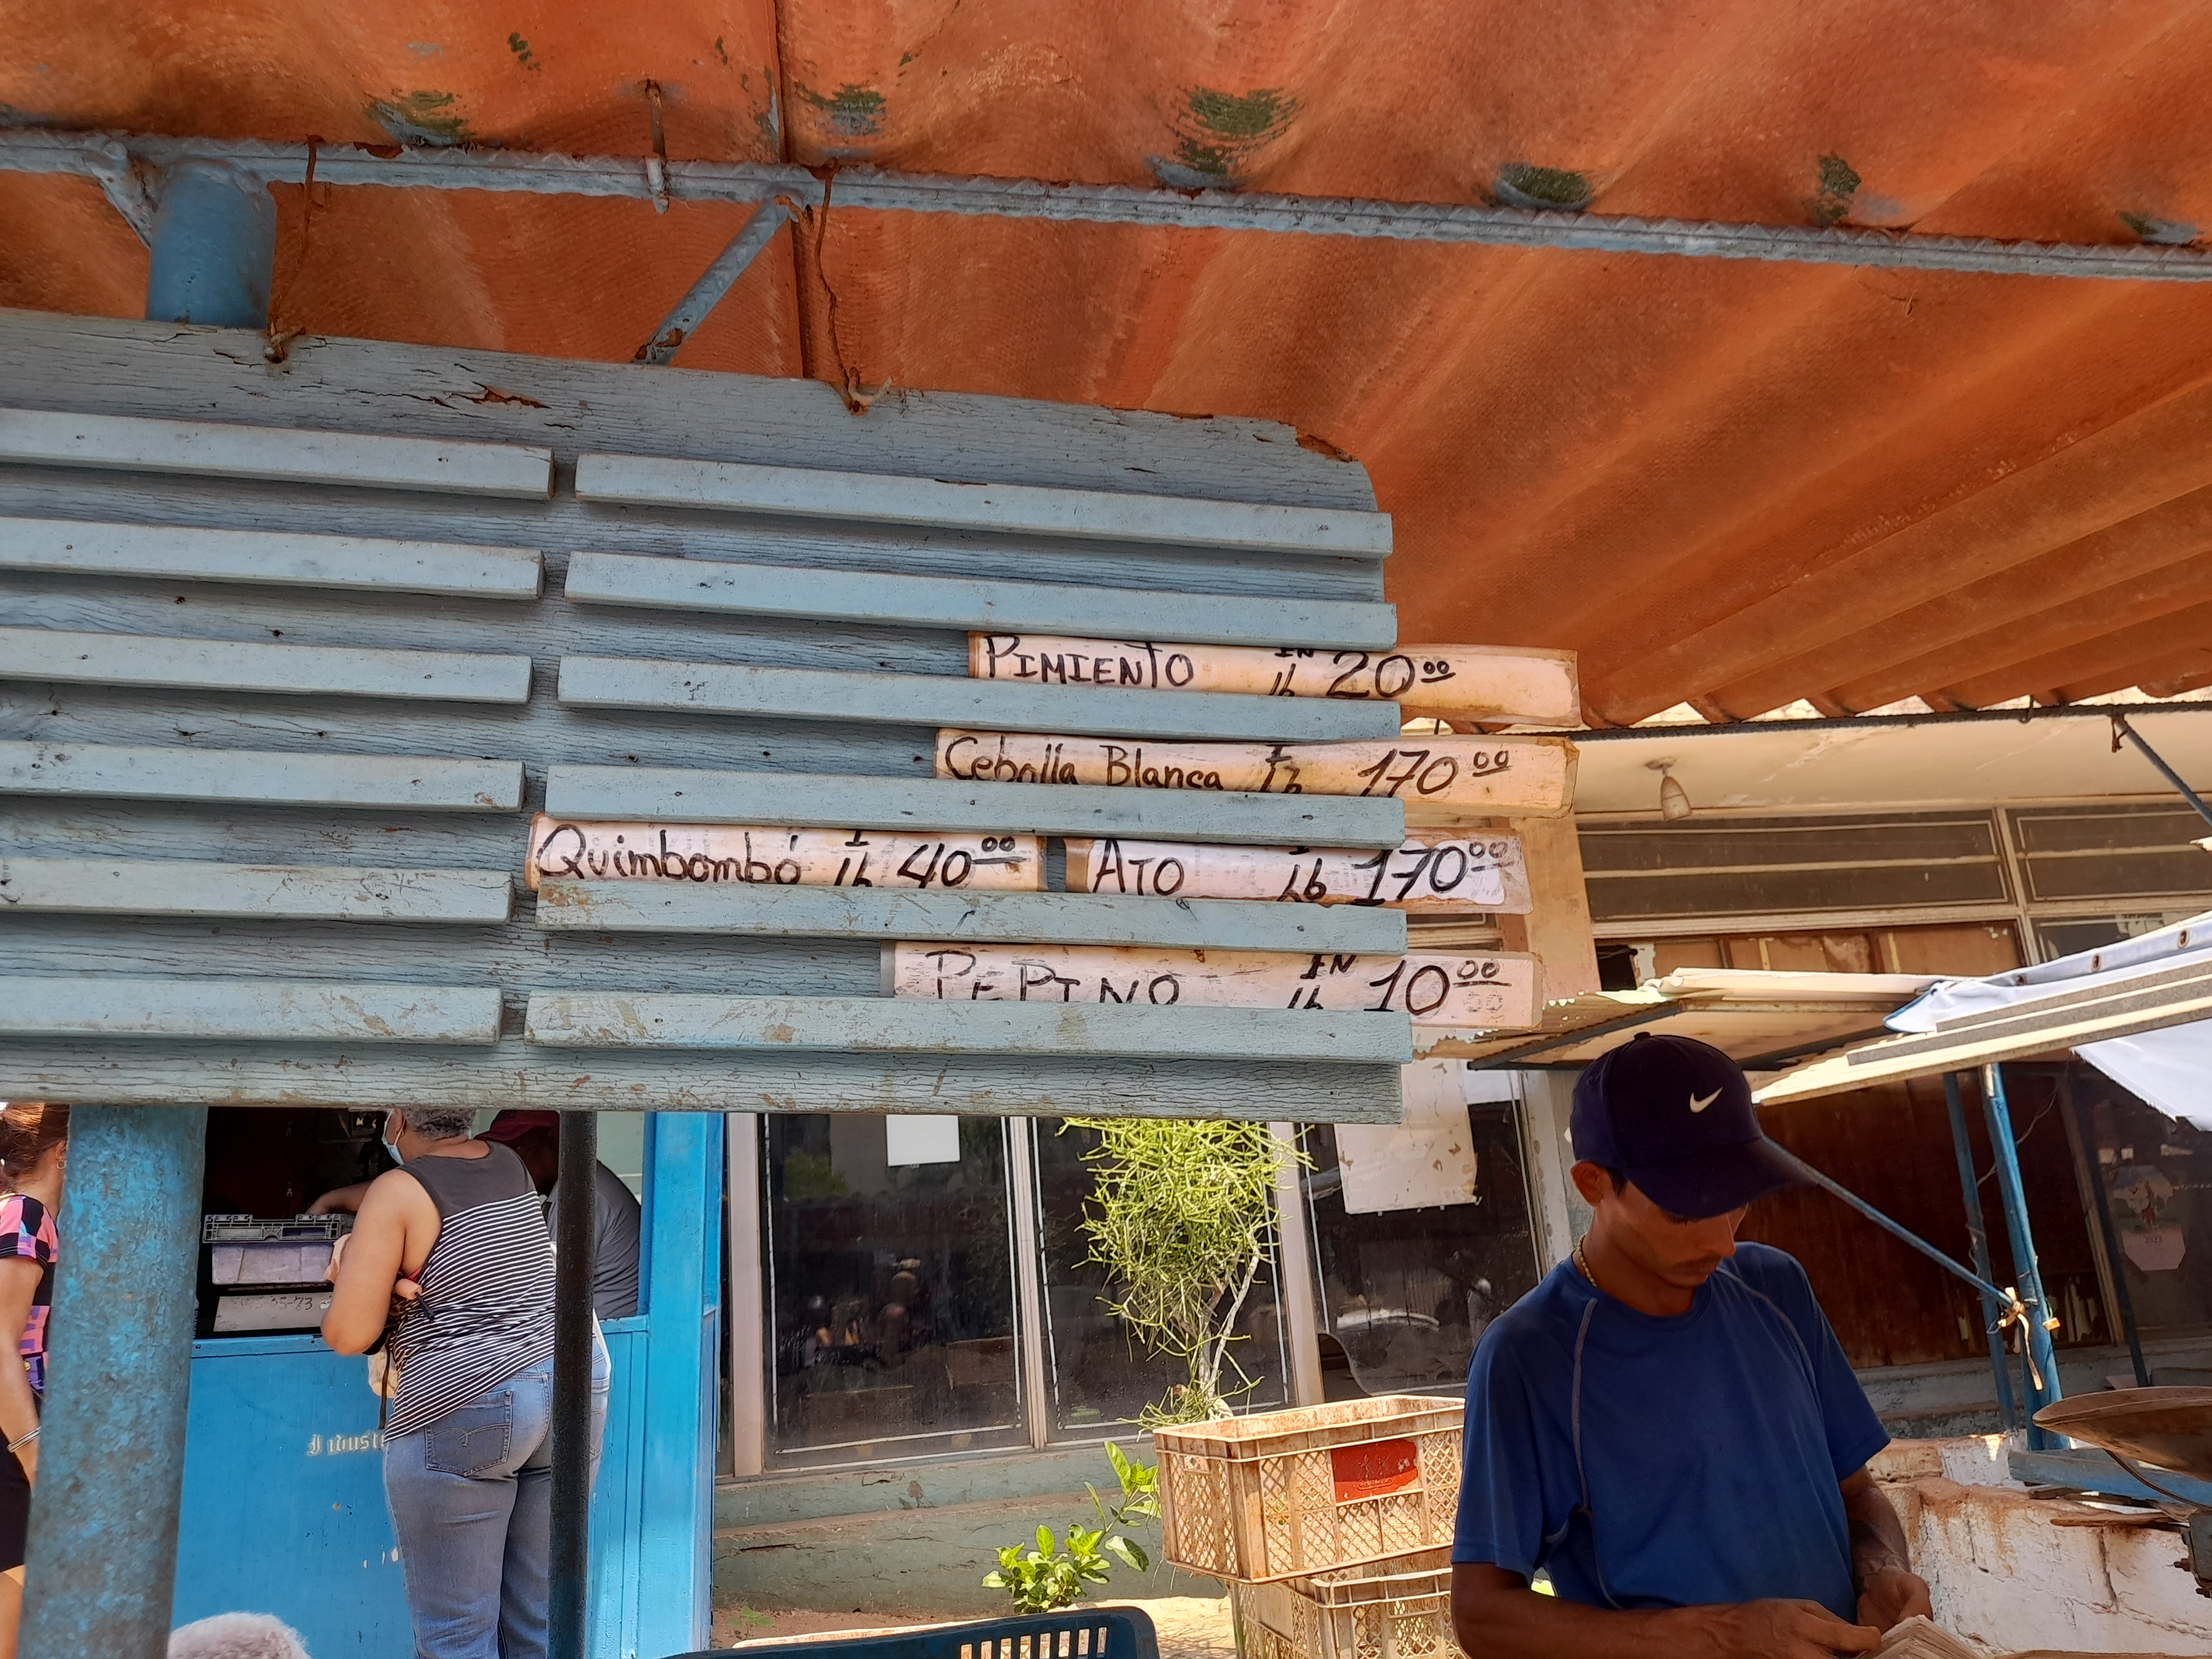 PIMIENTO IN lb 20 00
Cebolla Blanca 1 Lb 170 00
Quimbombó 1 lb 40 00
ATO 1 Lb 170 00
PEPINO IN lb 10 00